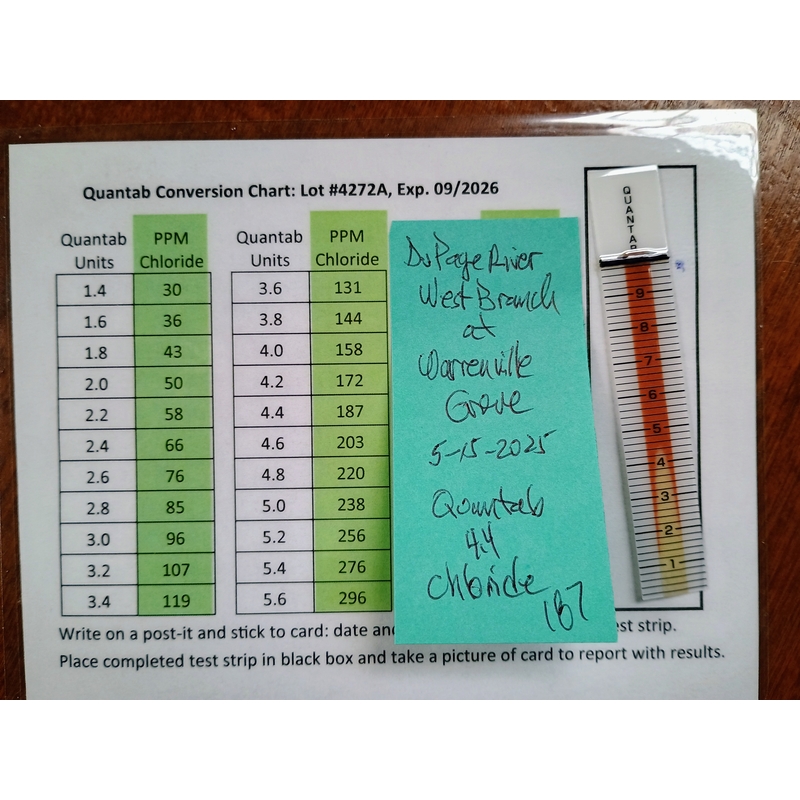 Quantab Conversion Chart: Lot #4272A, Exp. 09/2026
Quantab Units PPM Chloride Quantab Units PPM Chloride
1.4 30 3.6 131
1.6 36 3.8 144
1.8 43 4.0 158
2.0 50 4.2 172
2.2 58 4.4 187
2.4 66 4.6 203
2.6 76 4.8 220
2.8 85 5.0 238
3.0 96 5.2 256
3.2 107 5.4 276
3.4 119 5.6 296
Write on a post-it and stick to card: date an
st strip.
Place completed test strip in black box and take a picture of card to report with results.
DuPage River
West Branch
at
Warrenville
Grove
5-15-2025
Quantab
4.4
Chloride
187
QUANTAB
9
8
7
6
5
4
3
2
1